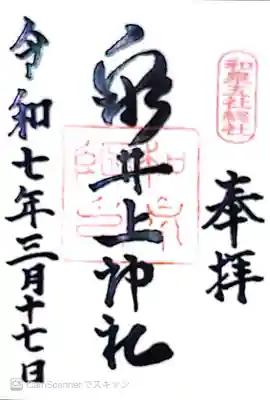 和泉五社総社
奉拝
泉井上神社
令和七年三月十七日
CamScannerでスキャン